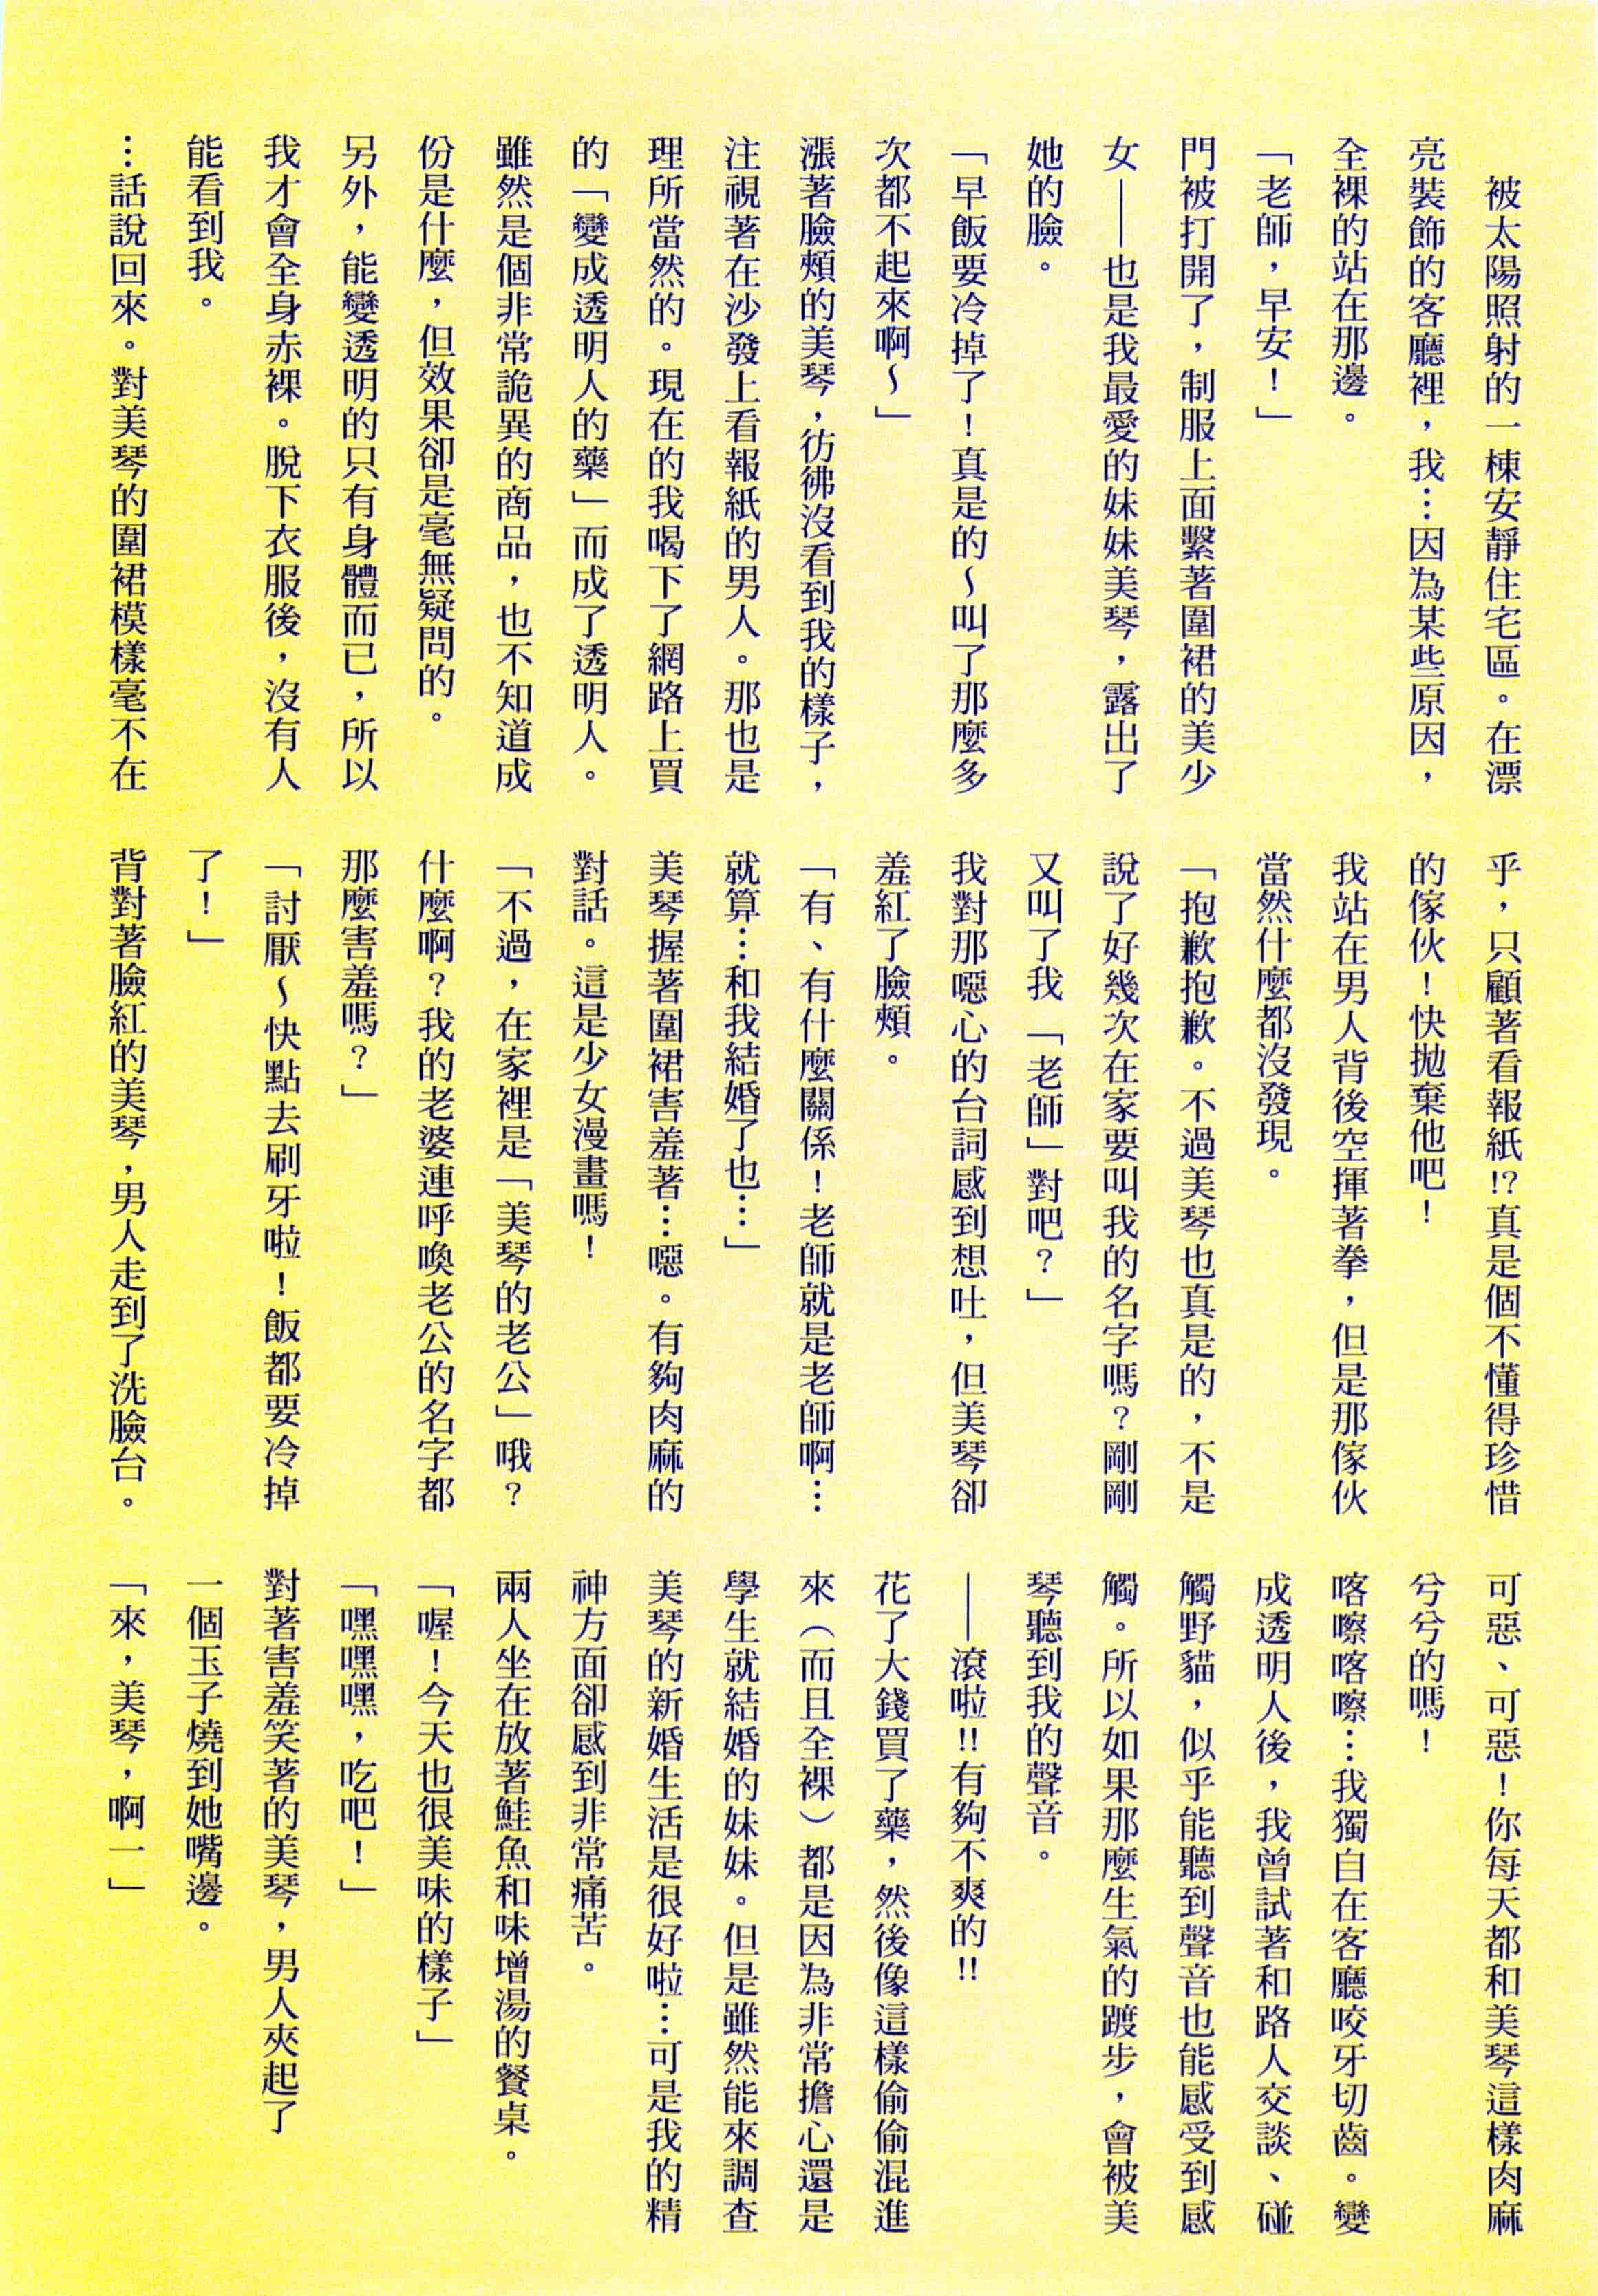 被太陽照射的一棟安靜住宅區。在漂
亮裝飾的客廳裡，我⋯因為某些原因，
全裸的站在那邊。
「老師，早安！」
門被打開了，制服上面繫著圍裙的美少
女——也是我最愛的妹妹美琴，露出了
她的臉。
「早飯要冷掉了！真是的～叫了那麼多
次都不起來啊～」
漲著臉頰的美琴，彷彿沒看到我的樣子，
注視著在沙發上看報紙的男人。那也是
理所當然的。現在的我喝下了網路上買
的「變成透明人的藥」而成了透明人。
雖然是個非常詭異的商品，也不知道成
份是什麼，但效果卻是毫無疑問的。
另外，能變透明的只有身體而已，所以
我才會全身赤裸。脫下衣服後，沒有人
能看到我。
⋯話說回來。對美琴的圍裙模樣毫不在
乎，只顧著看報紙!?真是個不懂得珍惜
的傢伙！快拋棄他吧！
我站在男人背後空揮著拳，但是那傢伙
當然什麼都沒發現。
「抱歉抱歉。不過美琴也真是的，不是
說了好幾次在家要叫我的名字嗎？剛剛
又叫了我「老師」對吧？」
我對那噁心的台詞感到想吐，但美琴卻
羞紅了臉頰。
「有、有什麼關係！老師就是老師啊⋯
就算⋯和我結婚了也⋯」
美琴握著圍裙害羞著⋯噁。有夠肉麻的
對話。這是少女漫畫嗎！
「不過，在家裡是「美琴的老公」哦？
什麼啊？我的老婆連呼喚老公的名字都
那麼害羞嗎？」
「討厭～快點去刷牙啦！飯都要冷掉
了！」
背對著臉紅的美琴，男人走到了洗臉台。
可惡、可惡！你每天都和美琴這樣肉麻
兮兮的嗎！
喀嚓喀嚓⋯我獨自在客廳咬牙切齒。變
成透明人後，我曾試著和路人交談、碰
觸野貓，似乎能聽到聲音也能感受到感
觸。所以如果那麼生氣的踱步，會被美
琴聽到我的聲音。
——滾啦!!有夠不爽的!!
花了大錢買了藥，然後像這樣偷偷混進
來（而且全裸）都是因為非常擔心還是
學生就結婚的妹妹。但是雖然能來調查
美琴的新婚生活是很好啦⋯可是我的精
神方面卻感到非常痛苦。
兩人坐在放著鮭魚和味增湯的餐桌。
「喔！今天也很美味的樣子」
「嘿嘿嘿，吃吧！」
對著害羞笑著的美琴，男人夾起了
一個玉子燒到她嘴邊。
「來，美琴，啊一」